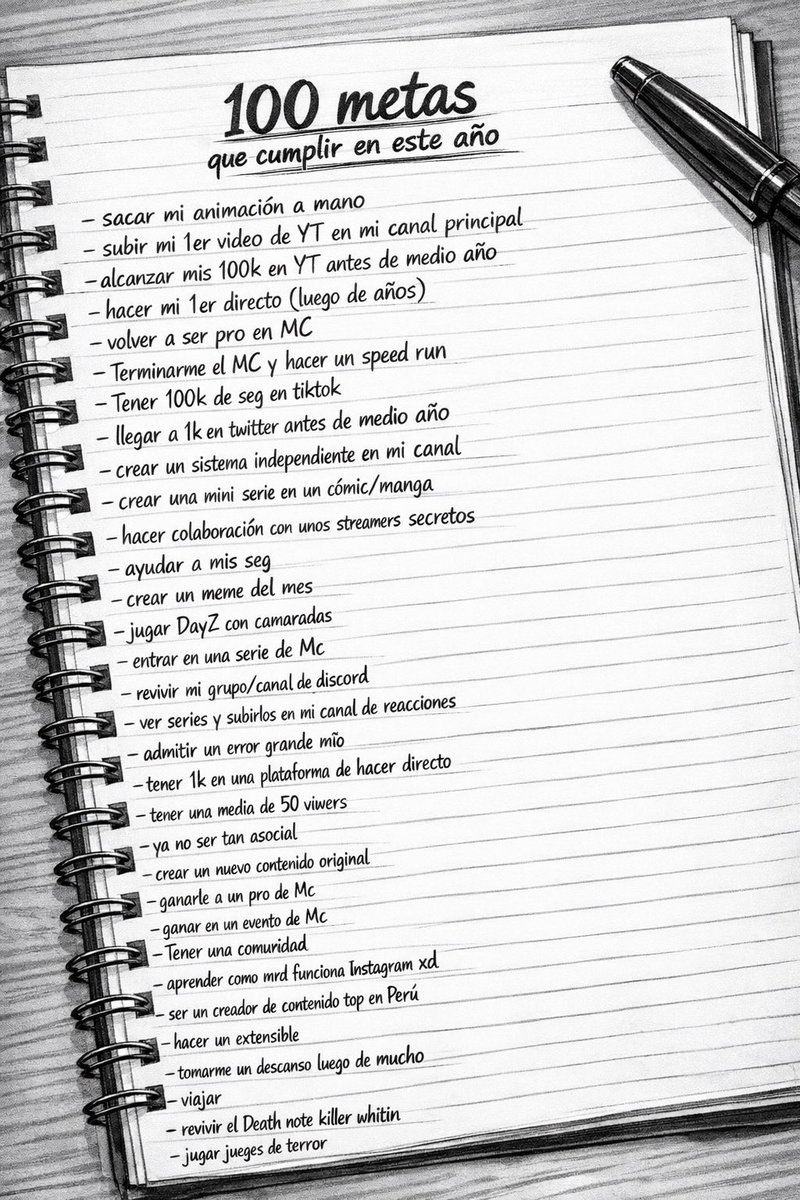 100 metas
que cumplir en este año
- sacar mi animación a mano
- subir mi 1er video de YT en mi canal principal
- alcanzar mis 100k en YT antes de medio año
- hacer mi 1er directo (luego de años)
- volver a ser pro en MC
- Terminarme el MC y hacer un speed run
- Tener 100k de seg en tiktok
- llegar a 1k en twitter antes de medio año
- crear un sistema independiente en mi canal
- crear una mini serie en un cómic/manga
- hacer colaboración con unos streamers secretos
- ayudar a mis seg
- crear un meme del mes
- jugar DayZ con camaradas
- entrar en una serie de Mc
- revivir mi grupo/canal de discord
- ver series y subirlos en mi canal de reacciones
- admitir un error grande mío
- tener 1k en una plataforma de hacer directo
- tener una media de 50 viwers
- ya no ser tan asocial
- crear un nuevo contenido original
- ganarle a un pro de Mc
- ganar en un evento de Mc
- Tener una comuridad
- aprender como mrd funciona Instagram xd
- ser un creador de contenido top en Perú
- hacer un extensible
- tomarme un descanso luego de mucho
- viajar
- revivir el Death note killer whitin
- jugar jueges de terror